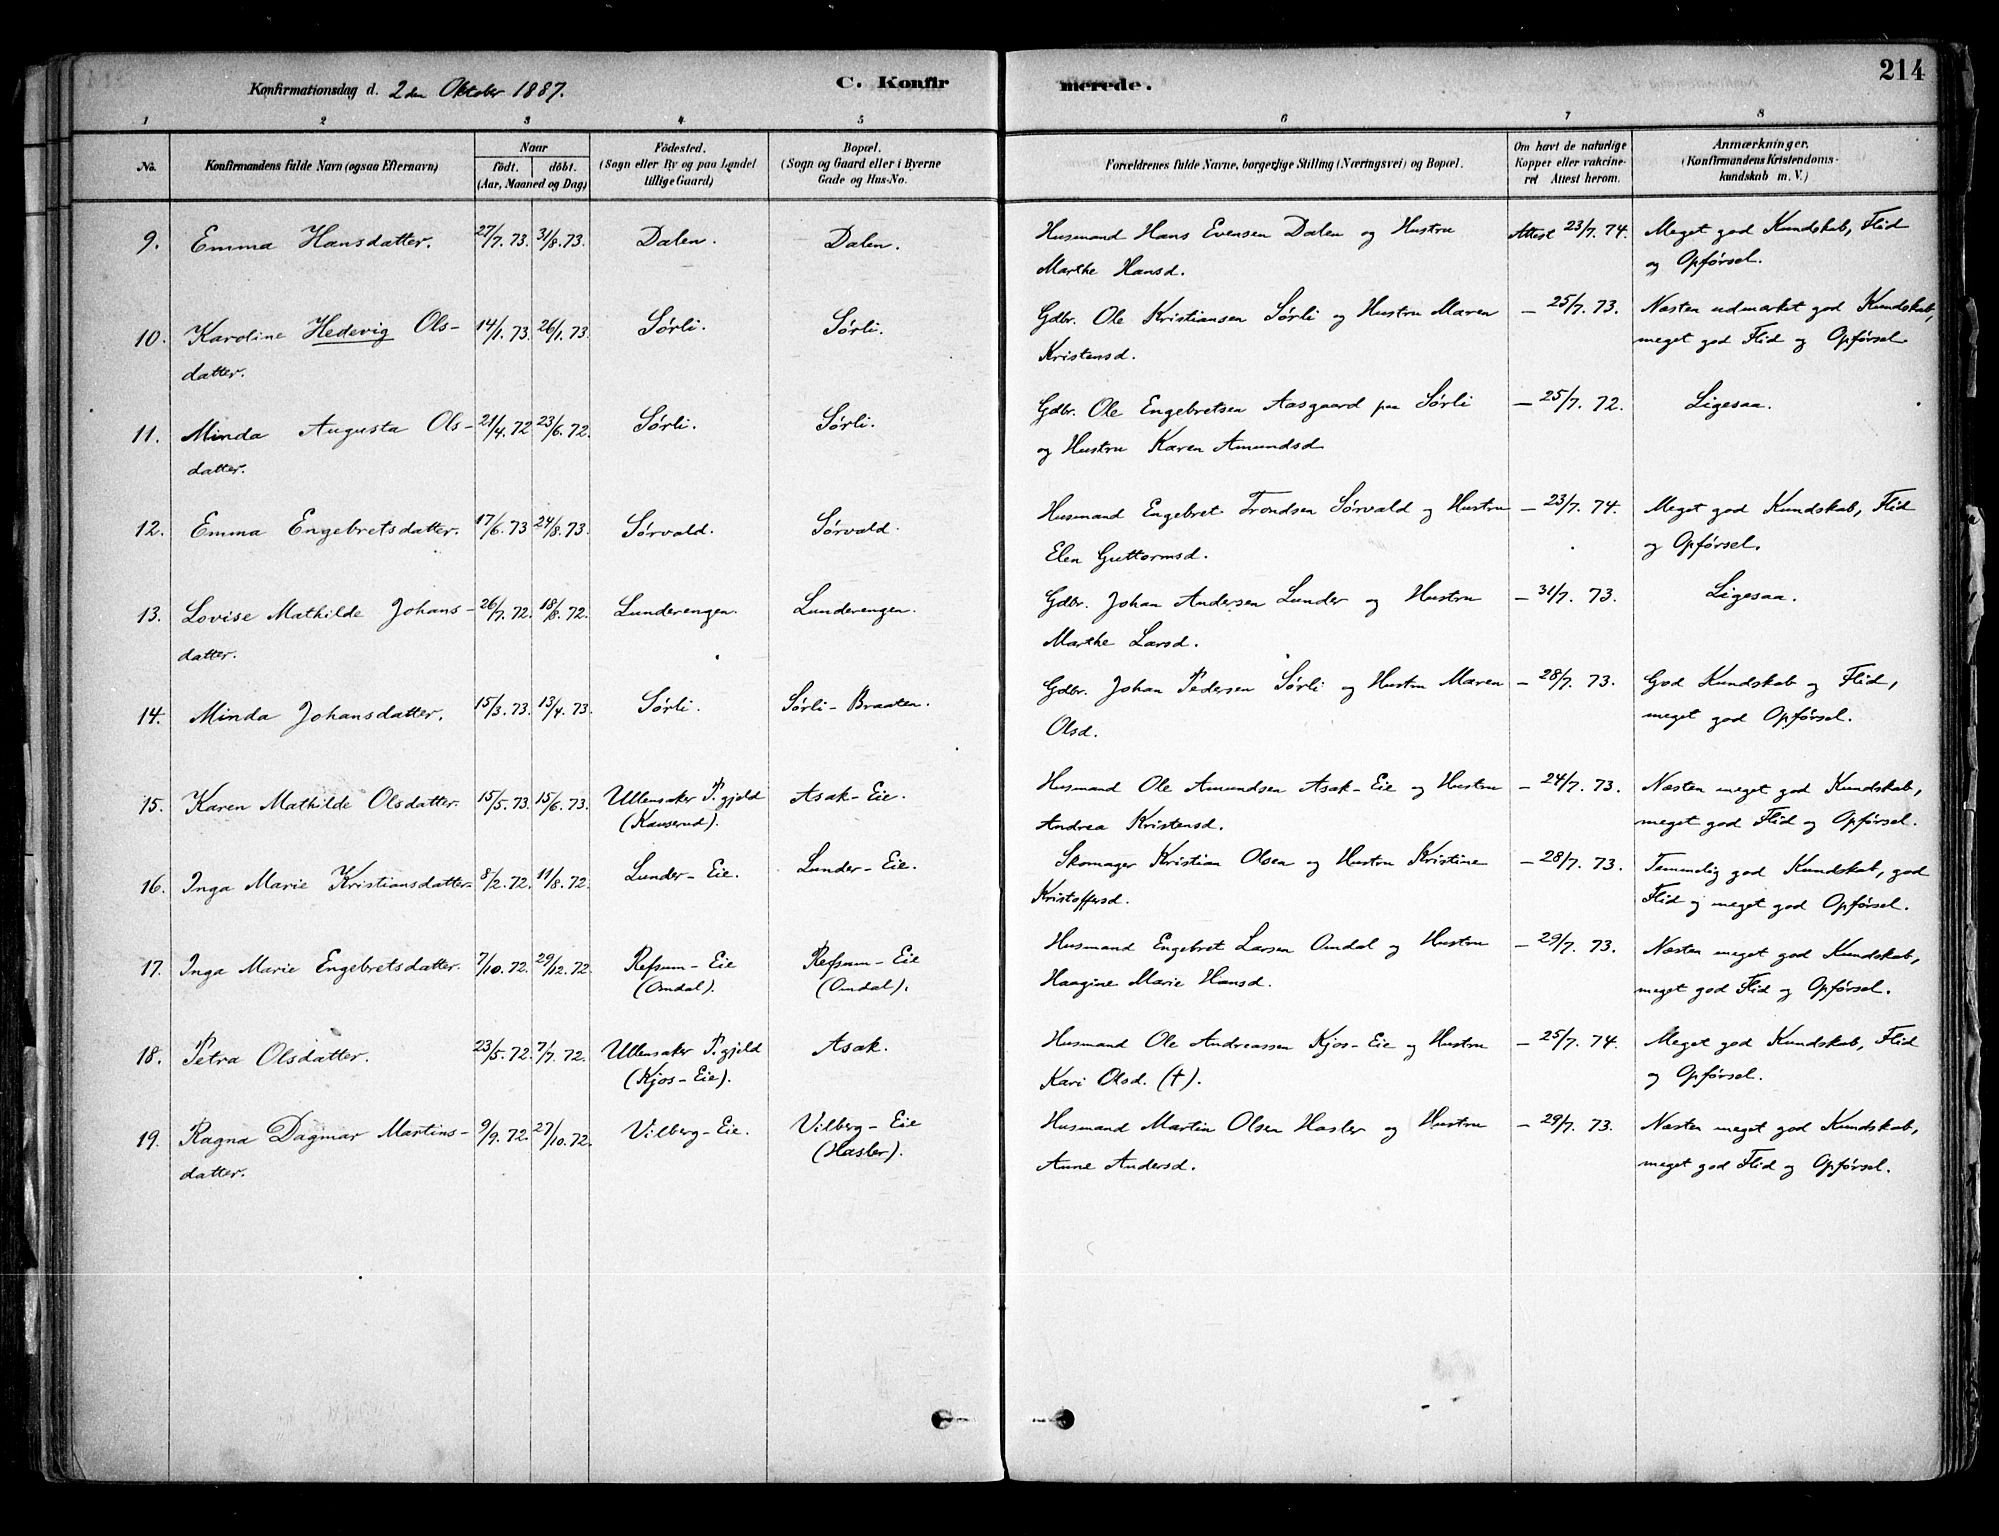 214
Konfirmationsdag d. 2den Oktober 1887.
C. Konfirmerede.
1 2 3 4 5 6 7 8
No.
Konfirmandens fulde Navn (ogsaa Efternavn)
Naar
født. døbt.
(Aar, Maaned og Dag)
Fødested.
(Sogn eller By og paa Landet
tillige Gaard)
Bopæl.
(Sogn og Gaard eller i Byerne
Gade og Hus-No.
Forældrenes fulde Navne, borgerlige Stilling (Næringsvei) og Bopæl.
Om havt de naturlige
Kopper eller vakcine-
ret Attest herom.
Anmærkninger.
(Konfirmandens Kristendoms-
kundskab m. V.)
9. Emma Hansdatter. 27/7. 73. 31/8. 73. Dalen. Dalen. Husmand Hans Evensen Dalen og Hustru Attest 23/7. 74. Meget god Kundskab, Flid
Marthe Hansd. og Opførsel.
10. Karoline Hedevig Ols- 14/1. 73. 26/1. 73. Sørli. Sørli. Gdbr. Ole Kristiansen Sørli og Hustru Maren — 25/7. 73. Næsten udmærket god Kundskab,
datter. Kristensd. meget god Flid og Opførsel.
11. Minda Augusta Ols- 21/4. 72 23/6. 72. Sørli. Sørli. Gdbr. Ole Engebretsen Aasgaard paa Sørli — 25/7. 72. Ligesaa.
datter. og Hustru Karen Amundsd
12. Emma Engebretsdatter. 17/6. 73 24/8. 73. Sørvald. Sørvald. Husmand Engebret Trondsen Sørvald og Hustru — 23/7. 74. Meget god Kundskab, Flid
Elen Guttormsd. og Opførsel.
13. Lovise Mathilde Johans- 26/7. 72. 18/8. 72. Lunderengen. Lunderengen. Gdbr. Johan Andersen Lunder og Hustru — 31/7. 73. Ligesaa.
datter. Marthe Larsd.
14. Minda Johansdatter. 15/3. 73. 13/4. 73. Sørli. Sørli-Braaten. Gdbr. Johan Pedersen Sørli og Hustru Maren — 28/7. 73. God Kundskab og Flid,
Olsd. meget god Opførsel.
15. Karen Mathilde Olsdatter. 15/5. 73. 15/6. 73. Ullensaker P. gjeld Asak-Eie. Husmand Ole Amundsen Asak-Eie og Hustru — 24/7. 73. Næsten meget god Kundskab,
(Kauserud). Andrea Kristensd. meget god Flid og Opførsel.
16. Inga Marie Kristiansdatter. 8/2. 72. 11/8. 72. Lunder-Eie. Lunder-Eie. Skomager Kristian Olsen og Hustru Kristine — 28/7. 73. Temmelig god Kundskab, god
Kristoffersd. Flid og meget god Opførsel.
17. Inga Marie Engebretsdatter. 7/10. 72. 29/12. 72. Refsum-Eie Refsum-Eie Husmand Engebret Larsen Omdal og Hustru — 29/7. 73. Næsten meget god Kundskab,
(Omdal). (Omdal). Haagine Marie Hansd. meget god Flid og Opførsel.
18. Petra Olsdatter. 23/5. 72. 7/7. 72. Ullensaker P. gjeld Asak. Husmand Ole Andreassen Kjos-Eie og Hustru — 25/7. 74. Meget god Kundskab, Flid
(Kjos-Eie). Kari Olsd. (†). og Opførsel.
19. Ragna Dagmar Martins- 9/9. 72. 27/10. 72. Vilberg-Eie. Vilberg-Eie Husmand Martin Olsen Hasler og Hustru — 29/7. 73. Næsten meget god Kundskab,
datter. (Hasler). Anne Andersd. meget god Flid og Opførsel.